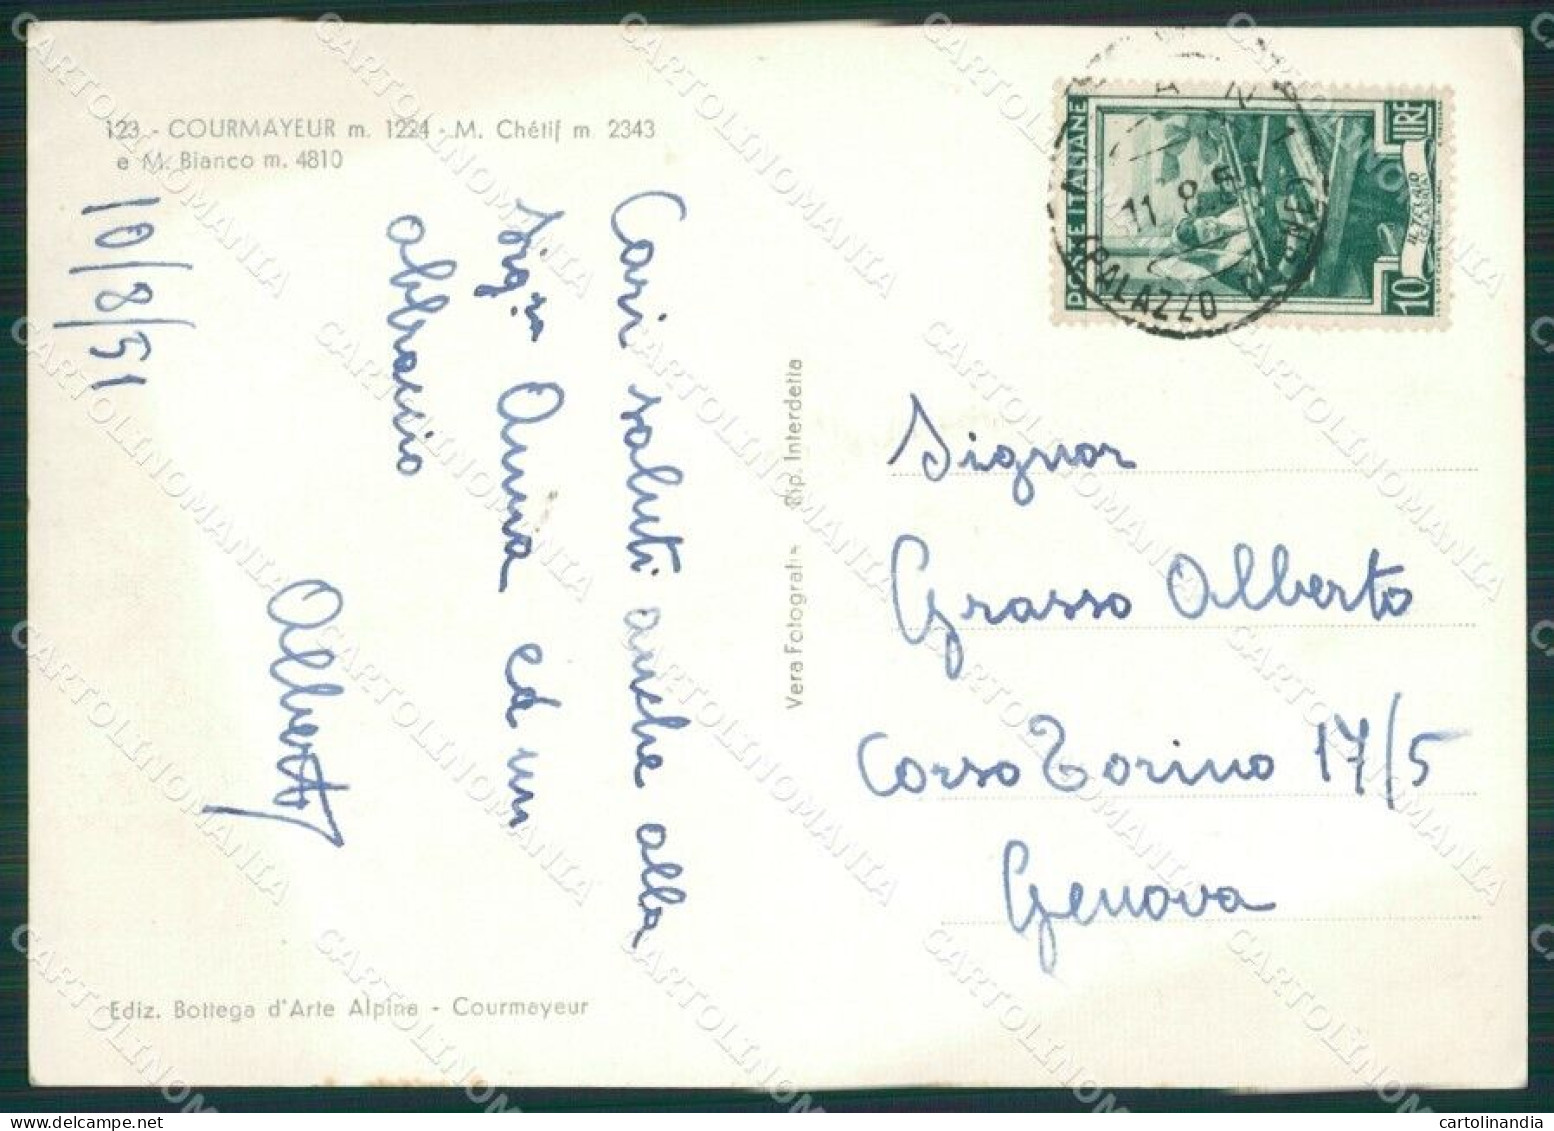 123 - COURMAYEUR m. 1224 - M. Chétif m 2343
e M. Bianco m. 4810
10/8/51
Cari saluti anche alla
Sig.ra Anna ed un
abbraccio
Alberto
Ediz. Bottega d'Arte Alpina - Courmayeur
Vera Fotografia Rip. Interdetta
POSTE ITALIANE
LIRE
10
11.8.51
PALAZZO
Signor
Grasso Alberto
Corso Torino 17/5
Genova
CARTOLINOMANIA
cartolinandia